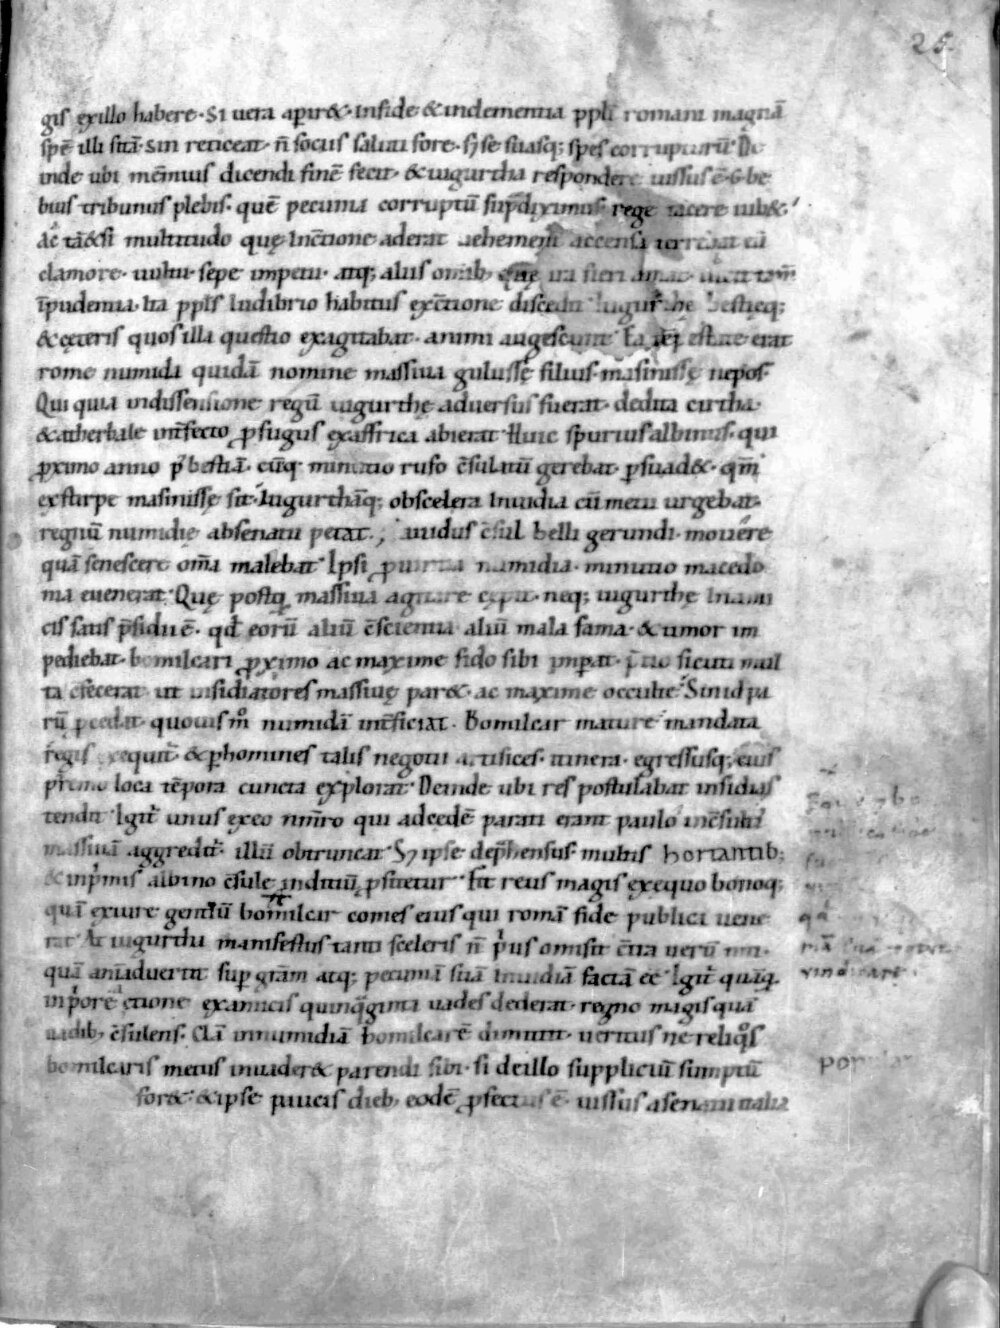 25
gis exillo habere · Si uera aperi& · infide & inclementia ppli romani magnā
spē illi sitā · sin reticeat · n̄ sociis saluti fore · s; se suasq; spes corrupturū · De
inde ubi mēmius dicendi finē fecit · & iugurtha respondere iussus ē · G · be
bius tribunus plebis · quē pecunia corruptū sup̄diximus · rege tacere iub& ·
Ac tā&si multitudo quę Inc̄tione aderat uehementi accensa terrebat eū
clamore · uultu · sepe impetu · atq; aliis om̄ib; quę ira fieri amat · uicit tam̄
īpudentia · Ita ppls ludibrio habitus exc̄tione discedit · Iugurthę bestięq;
& cęteris quos illa questio exagitabat · animi augescunt · Ea tēpestate erat
rome numida quidā nomine massiua gulussę filius · masinissę nepos ·
Qui quia indissensione regū iugurthę aduersus fuerat · dedita cirtha ·
& atherbale int̄fecto p̲fugus exaffrica abierat · Huic spurius albinus · qui
p̲ximo anno p̄ bestiā · cū q; minutio rufo c̄sulatū gerebat · p̲suad& · qm̄
exstirpe masinissę sit · Iugurthāq; obscelera Inuidia cū metu urgebat ·
regnū numidię absenatu petat ·; auidus c̄sul belli gerundi · mouere
quā senescere om̄a malebat · Ipsi p̲uintia numidia · minutio macedo
nia euenerat · Quę postq̄ massiua agitare cępit · neq; iugurthę Inami
cis satis p̄sidii ē · qd̄ eorū aliū c̄scientia aliū mala fama · & timor im
pediebat · bomilcari p̲ximo ac maxime fido sibi imperat · p̄tio sicuti mul
ta c̄fecerat ut insidiatores massiuę par& · ac maxime occulte · Sin id pa
rū p̲cedat · quouis m̊ numidā int̄ficiat · Bomilcar mature mandata
regis exequit̄ · & p̲homines talis negotii artifices · itinera · egressusq; eius
p̄remo loca tēpora cuncta explorat · Deinde ubi res postulabat insidias
tendit · Igit̄ unus exeo num̄ro qui adcedē parati erant paulo inc̄sulti
massiuā aggredit̄ · illū obtruncat · S; ipse dep̄hensus · multis hortantib;
& inp̄mis albino c̄sule inditiū p̲fitetur · Fit reus magis exequo bonoq;
quā exiure gentiū bomilcar comes eius qui romā fide publica uene
rat · At iugurtha manifestus tanti sceleris n̄ p̄us omisit c̄tra uerū niti ·
quā anim̄aduertit sup gr̄am atq; pecuniā suā Inuidiā factā eē · Igit̄ quāq̄
inp̄ore c̄tione examicis quinq̄ginta uades dederat · regno magis quā
uadib; c̄sulens · Clā innumidiā bomilcarē dimittit · ueritus ne reliq̊s
bomilcaris metus inuader& parendi sibi · si deillo suppliciū sumptū
for& · & ipse paucis dieb; eodē p̲fectus ē · iussus asenatu italia
uindicare ·
popular